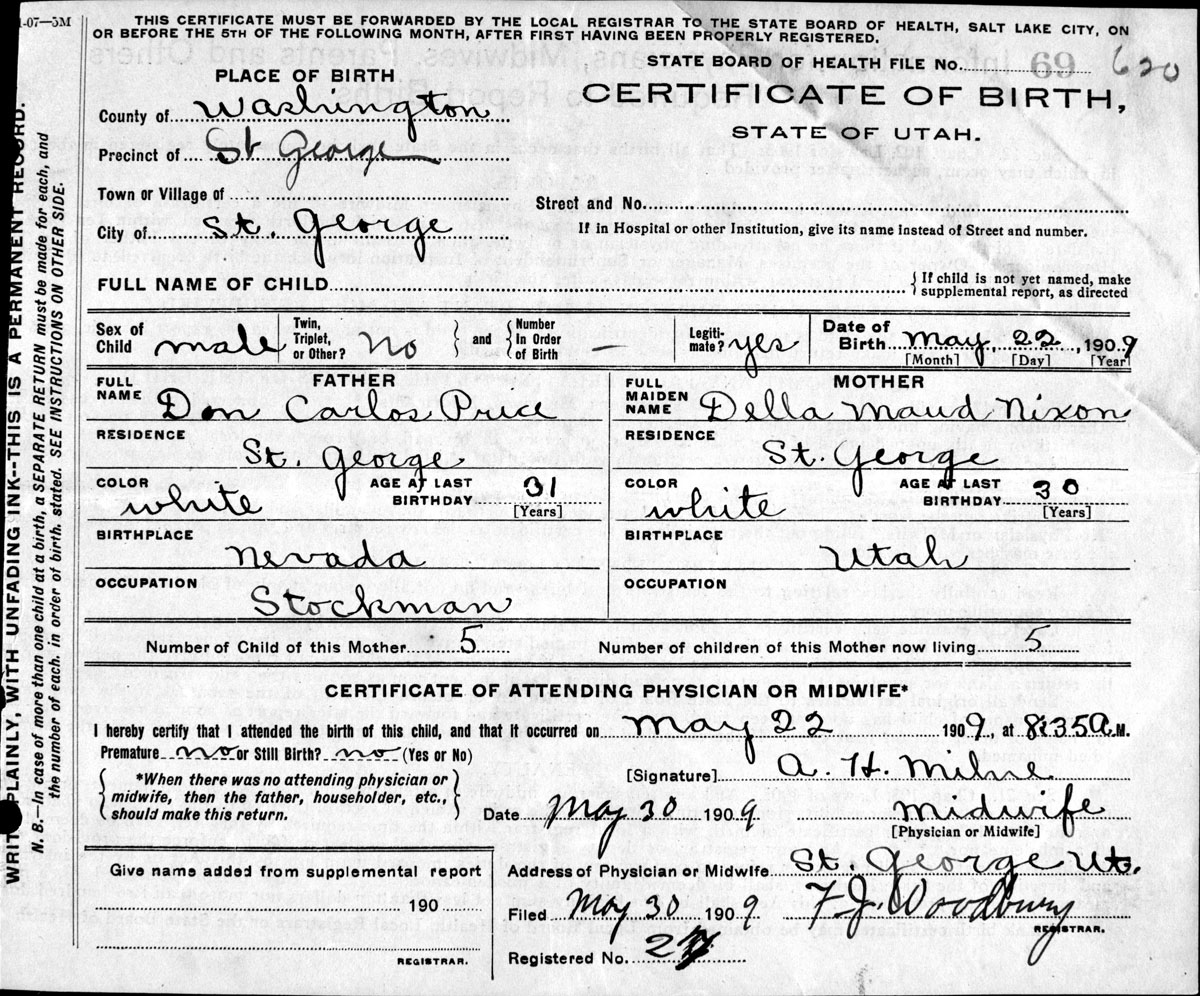 1-07—5M
THIS CERTIFICATE MUST BE FORWARDED BY THE LOCAL REGISTRAR TO THE STATE BOARD OF HEALTH, SALT LAKE CITY, ON
OR BEFORE THE 5TH OF THE FOLLOWING MONTH, AFTER FIRST HAVING BEEN PROPERLY REGISTERED.
STATE BOARD OF HEALTH FILE No. 69 620
PLACE OF BIRTH
CERTIFICATE OF BIRTH,
STATE OF UTAH.
County of Washington
Precinct of St George
Town or Village of
Street and No.
City of St. George
If in Hospital or other Institution, give its name instead of Street and number.
FULL NAME OF CHILD { If child is not yet named, make
supplemental report, as directed
Sex of Child male Twin, Triplet, or Other? No } and { Number In Order of Birth — Legitimate? yes Date of Birth May, 22, 1909
[Month] [Day] [Year]
FATHER
FULL NAME Don Carlos Price
RESIDENCE
St. George
COLOR white AGE AT LAST BIRTHDAY 31
[Years]
BIRTHPLACE
Nevada
OCCUPATION
Stockman
MOTHER
FULL MAIDEN NAME Della Maud Nixon
RESIDENCE
St. George
COLOR white AGE AT LAST BIRTHDAY 30
[Years]
BIRTHPLACE
Utah
OCCUPATION
Number of Child of this Mother 5 Number of children of this Mother now living 5
CERTIFICATE OF ATTENDING PHYSICIAN OR MIDWIFE*
I hereby certify that I attended the birth of this child, and that it occurred on May 22 1909, at 8:35 A.M.
Premature no or Still Birth? no (Yes or No)
{ *When there was no attending physician or
midwife, then the father, householder, etc.,
should make this return. }
[Signature] A. H. Milne
Date May 30 1909 Midwife
[Physician or Midwife]
Give name added from supplemental report
190
REGISTRAR.
Address of Physician or Midwife St. George Ut.
Filed May 30 1909 F. J. Woodbury
REGISTRAR.
Registered No. 27
WRITE PLAINLY, WITH UNFADING INK--THIS IS A PERMANENT RECORD.
N. B.—In case of more than one child at a birth, a SEPARATE RETURN must be made for each, and
the number of each, in order of birth, stated. SEE INSTRUCTIONS ON OTHER SIDE.